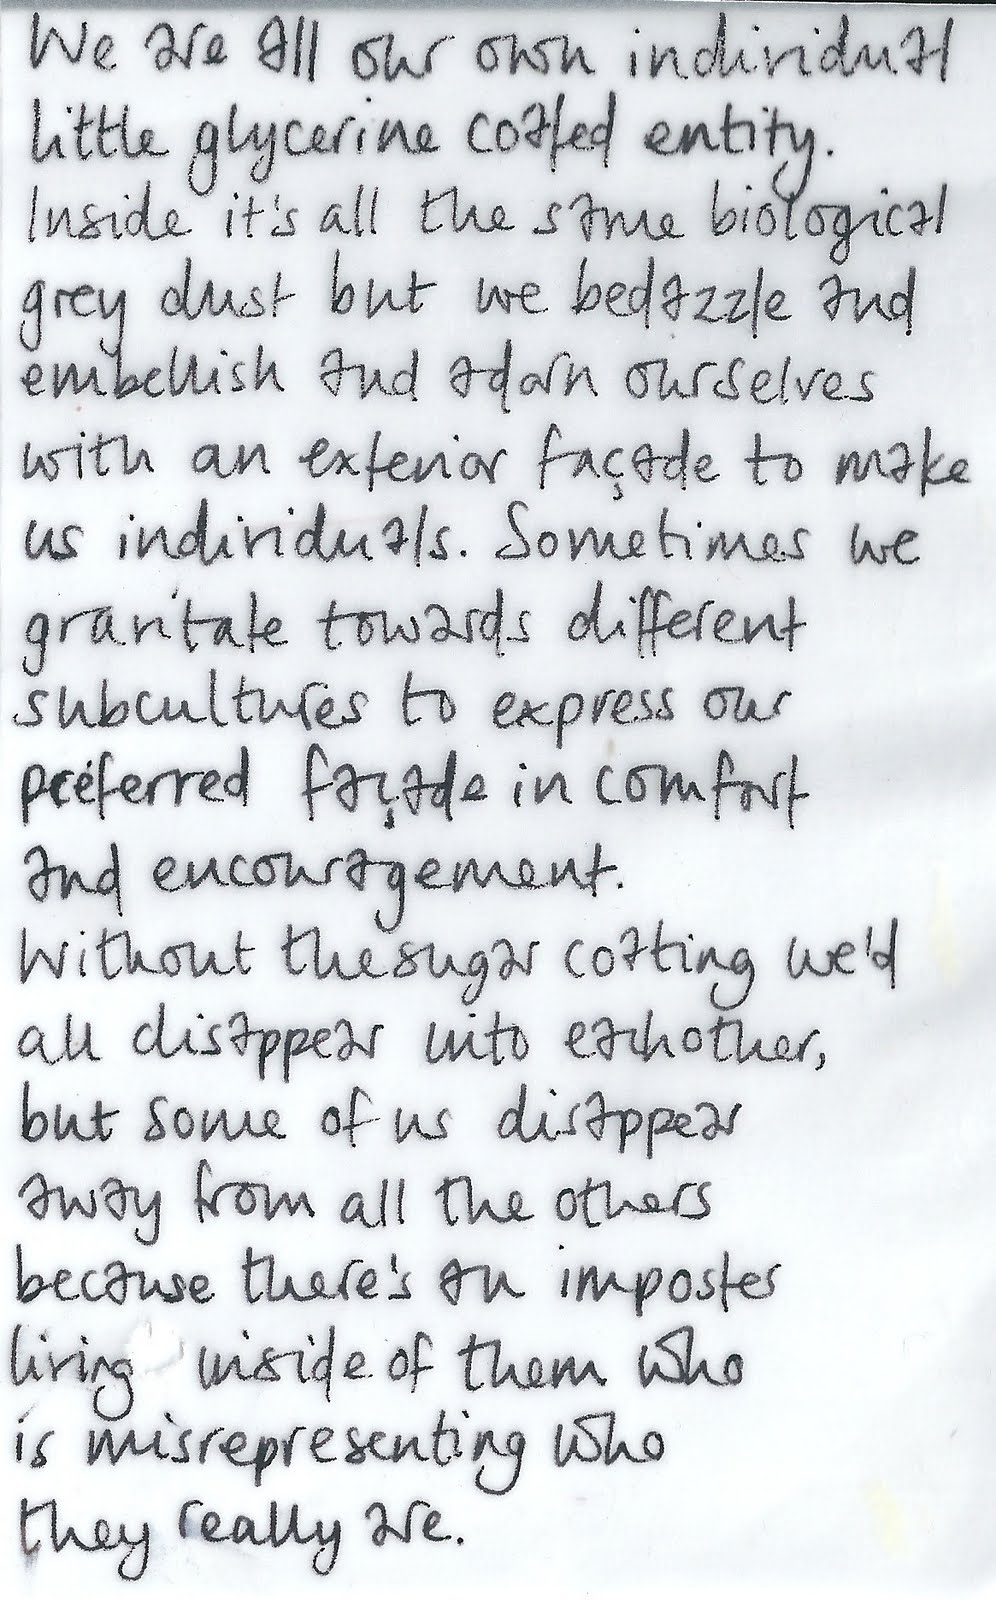 We are all our own individual
little glycerine coated entity.
Inside it's all the same biological
grey dust but we bedazzle and
embellish and adorn ourselves
with an exterior façade to make
us individuals. Sometimes we
gravitate towards different
subcultures to express our
preferred façade in comfort
and encouragement.
Without the sugar coating we'd
all disappear into eachother,
but some of us disappear
away from all the others
because there's an imposter
living inside of them who
is misrepresenting who
they really are.